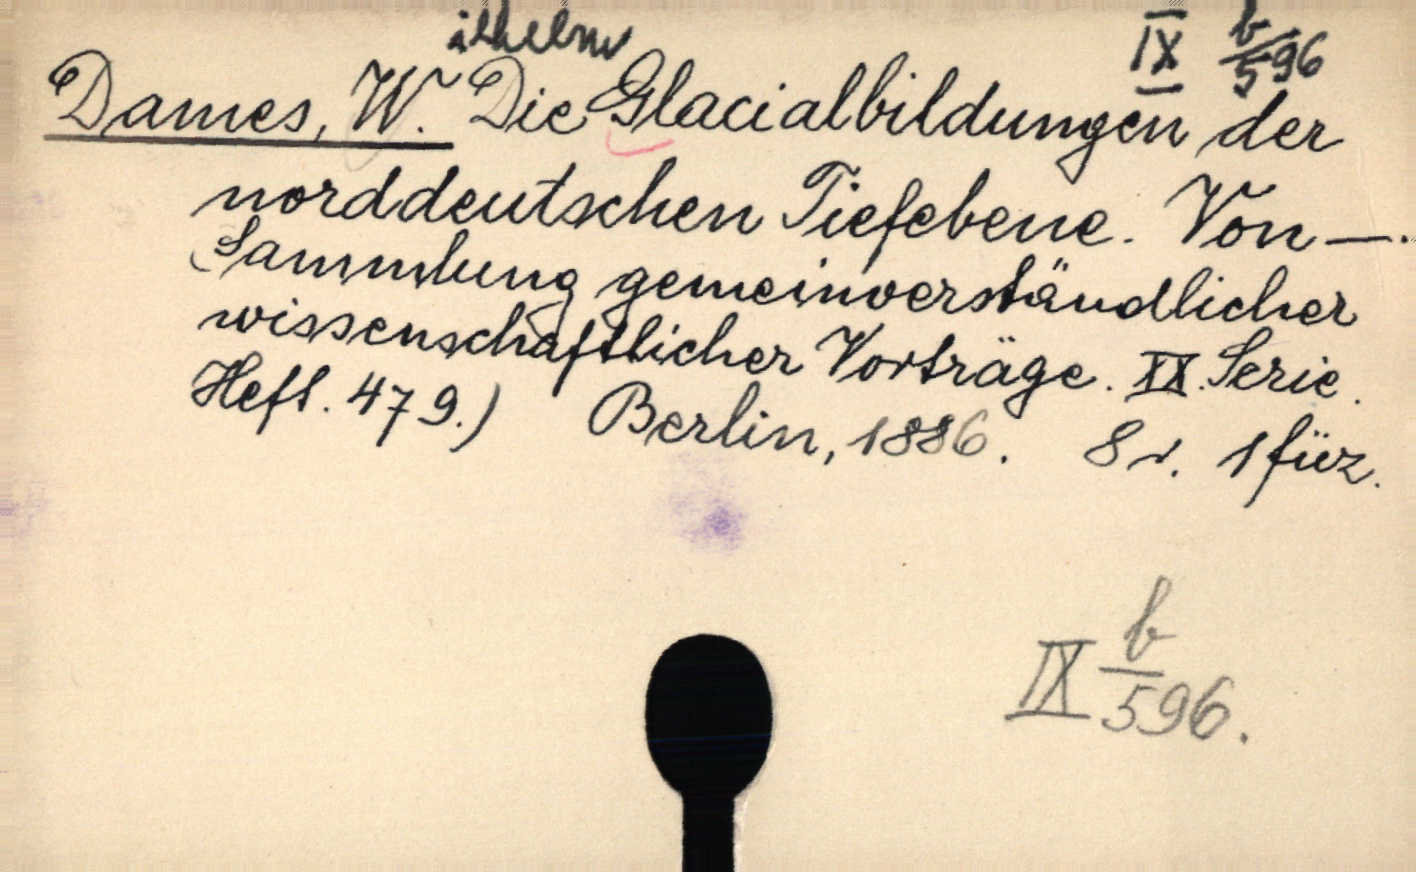 ilhelm IX b/596
Dames, W. Die Glacialbildungen der
norddeutschen Tiefebene. Von —.
(Sammlung gemeinverständlicher
wissenschaftlicher Vorträge. XX. Serie.
Heft. 479.) Berlin, 1886. 8r. 1 füz.
IX b/596.